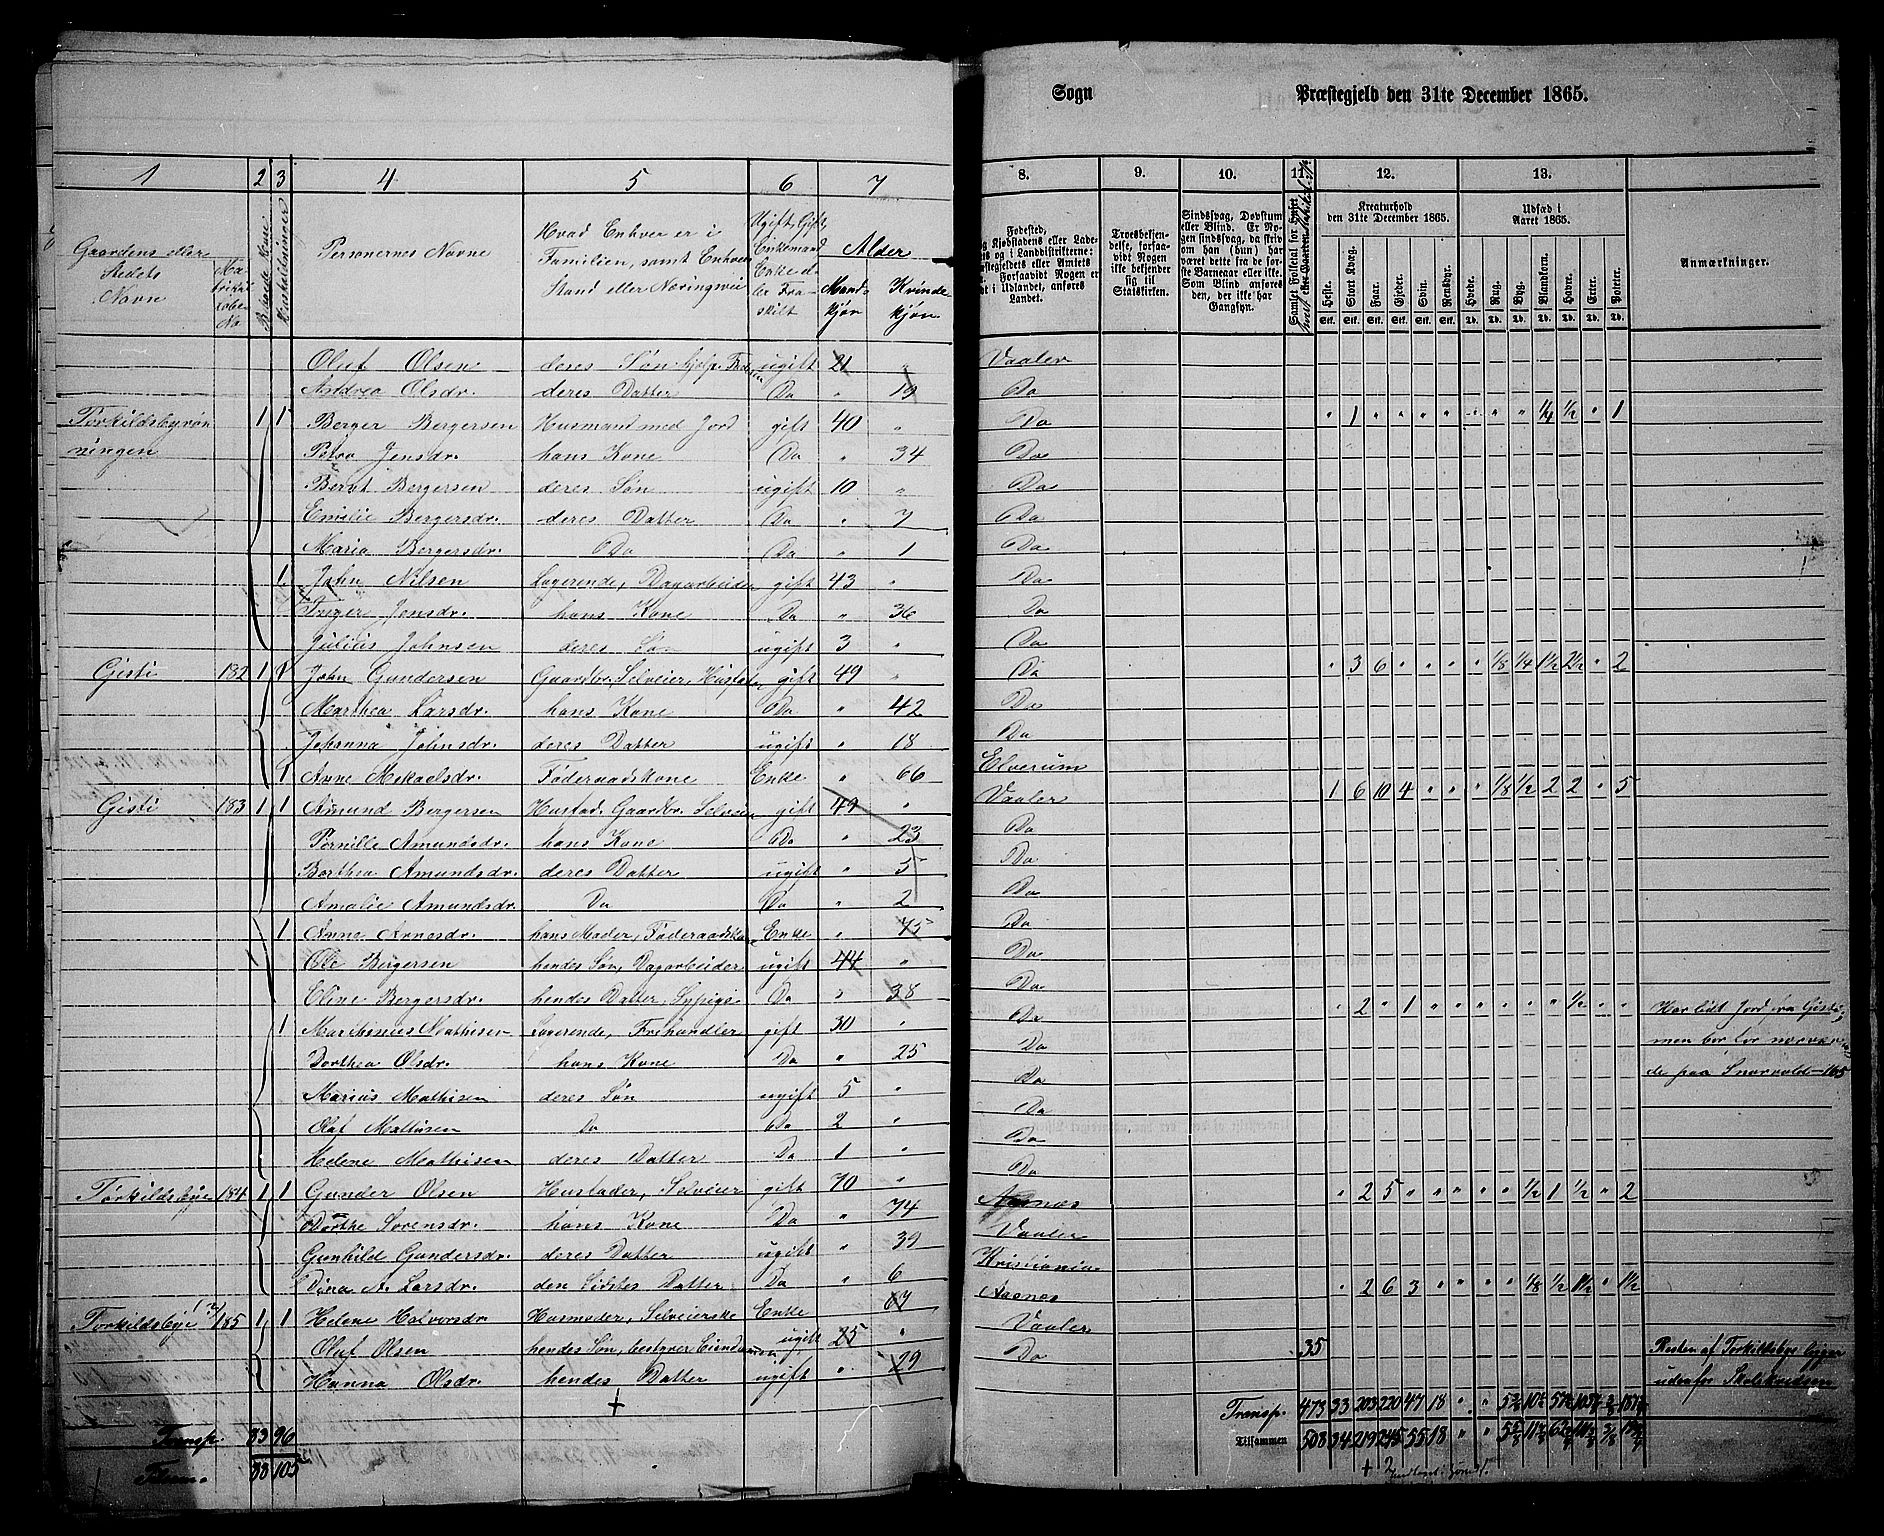 Sogn Præstegjeld den 31te December 1865.
1 2 3 4 5 6 7
Gaardens eller Stedets Navn
Matrikul Løbe No
Bebode Huse
Husholdninger
Personernes Navne
Hvad Enhver er i Familien, samt Enhvers Stand eller Næringsvei
Ugift, Gift, Enkemand Enke eller Fraskilt
Alder
Mandkjøn Kvindekjøn
8. 9. 10. 11. 12. 13.
Fødested,
og Kjøbstadens eller Lade-
Forsaavidt Nogen er
født i Udlandet, anføres
Landet.
Troesbekjen-
delse, forsaa-
vidt Nogen
ikke bekjender
sig til
Statskirken.
Sindssvag, Døvstum
eller Blind. Er No-
gen sindssvag, da skriv
om han (hun) har
været dette fra de før-
ste Barneaar eller ikke.
Som Blind anføres
den, der ikke har
Gangsyn.
Kreaturhold
den 31te December 1865.
Heste. Stort Kvæg. Faar. Gjeder. Svin. Rensdyr.
Udsæd i
Aaret 1865.
Hvede. Rug. Byg. Blandkorn. Havre. Erter. Poteter.
Anmærkninger.
Oluf Olsen deres Søn hjelp. Faderen ugift 21 " Vaaler
Andrea Olsdr. deres Datter Do " 19 Do
Torkildsbyrøn- 1 1 Berger Bergersen Husmand med Jord gift 40 " Do " 1 " " " " " " " 1/4 1/2 " 1
ningen Petra Jensdr. hans Kone Do " 34 Do
Bernt Bergersen deres Søn ugift 10 " Do
Emilie Bergersdr. deres Datter Do " 7 Do
Maria Bergersdr. Do Do " 1 Do
1 John Nilsen Logerende, Dagarbeider gift 43 " Do
Inger Jensdr. hans Kone Do " 36 Do
Julius Johnsen deres Søn ugift 3 " Do
Gisti 182 1 1 John Gundersen Gaardbr. Selveier, Husfader gift 49 " Do " 3 6 " " " " 1/8 1/4 1 1/2 2 1/2 " 2
Marthea Larsdr. hans Kone Do " 42 Do
Johanna Johnsdr. deres Datter ugift " 18 Do
1 Anne Mekaelsdr. Føderaadskone Enke " 66 Elverum
Gisti 183 1 1 Amund Bergersen Husfad. Gaardbr. Selveier gift 49 " Vaaler 1 6 10 4 " " " 1/8 1/2 2 2 " 5
Pernille Amundsdr. hans Kone Do " 23 Do
Berthea Amundsdr. deres Datter ugift " 5 Do
Amalie Amundsdr. Do Do " 2 Do
1 Anne Arnesdr. hans Moder, Føderaadsk. Enke " 75 Do
Ole Bergersen hendes Søn, Dagarbeider ugift 44 " Do
Eline Bergersdr. hendes Datter, Sypige Do " 38 Do
1 Marthinius Mathisen Logerende, Frihandler gift 30 " Do " 2 " 1 " " " " " " 1/2 " " Har lidt Jord fra Gisti,
Dorthea Olsdr. hans Kone Do " 25 Do men bor for nærværen-
Marius Mathisen deres Søn ugift 5 " Do de paa Snarvold 165
Olaf Mathisen Do Do 2 " Do
Helene Mathisen deres Datter Do 1 " Do
Torkildsbye 184 1 1 Gunder Olsen Husfader, Selveier gift 70 " Aasnes " 2 5 " " " " " 1/2 1 1/2 " 2
Dorthe Sørensdr. hans Kone Do " 74 Vaaler
Gunhild Gundersdr. deres Datter ugift " 39 Kristiania
Dina A. Larsdr. den Sidstes Datter Do " 6 Aasnes
Torkildsbye 185 1 1 Helene Halvorsdr. Husmoder, Selveierske Enke " 67 Vaaler " 2 6 3 " " " " 1/8 1/2 1 1/2 " 1 1/2
Oluf Olsen hendes Søn, bestyrer Eiendommen ugift 25 " Do 35 Resten af Torkildsbye ligger
Hanna Olsdr. hendes Datter ugift " 29 udenfor Skolekredsen
Transp. 83 96 Transp. 473 33 203 220 47 18
Tilsam. 88 105 Tilsammen 508 34 219 245 55 18